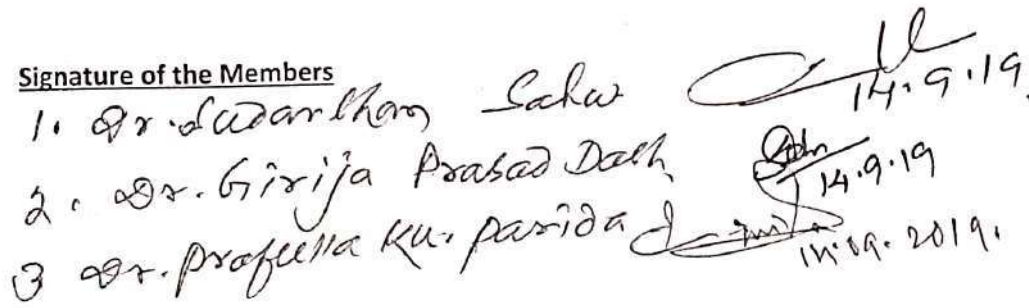 Signature of the Members
1. Dr. Sudarshan Sahu 14.9.19
2. Dr. Girija Prasad Dash 14.9.19
3 Dr. Prafulla Ku. Parida 14.09.2019.